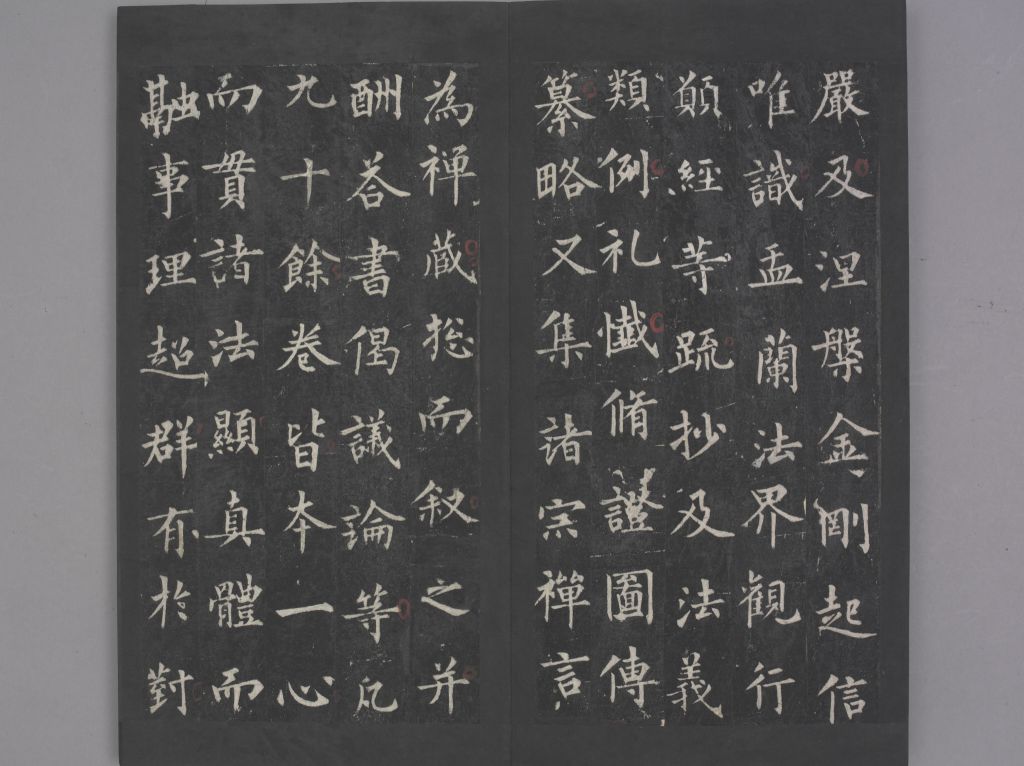 嚴及涅槃金剛起信
唯識盂蘭法界觀行
願經等疏抄及法義
類例礼懺脩證圖傳
纂略又集諸宗禪言
為禪藏揔而叙之并
酬荅書偈議論等凡
九十餘卷皆本一心
而貫諸法顯真體而
融事理超群有於對